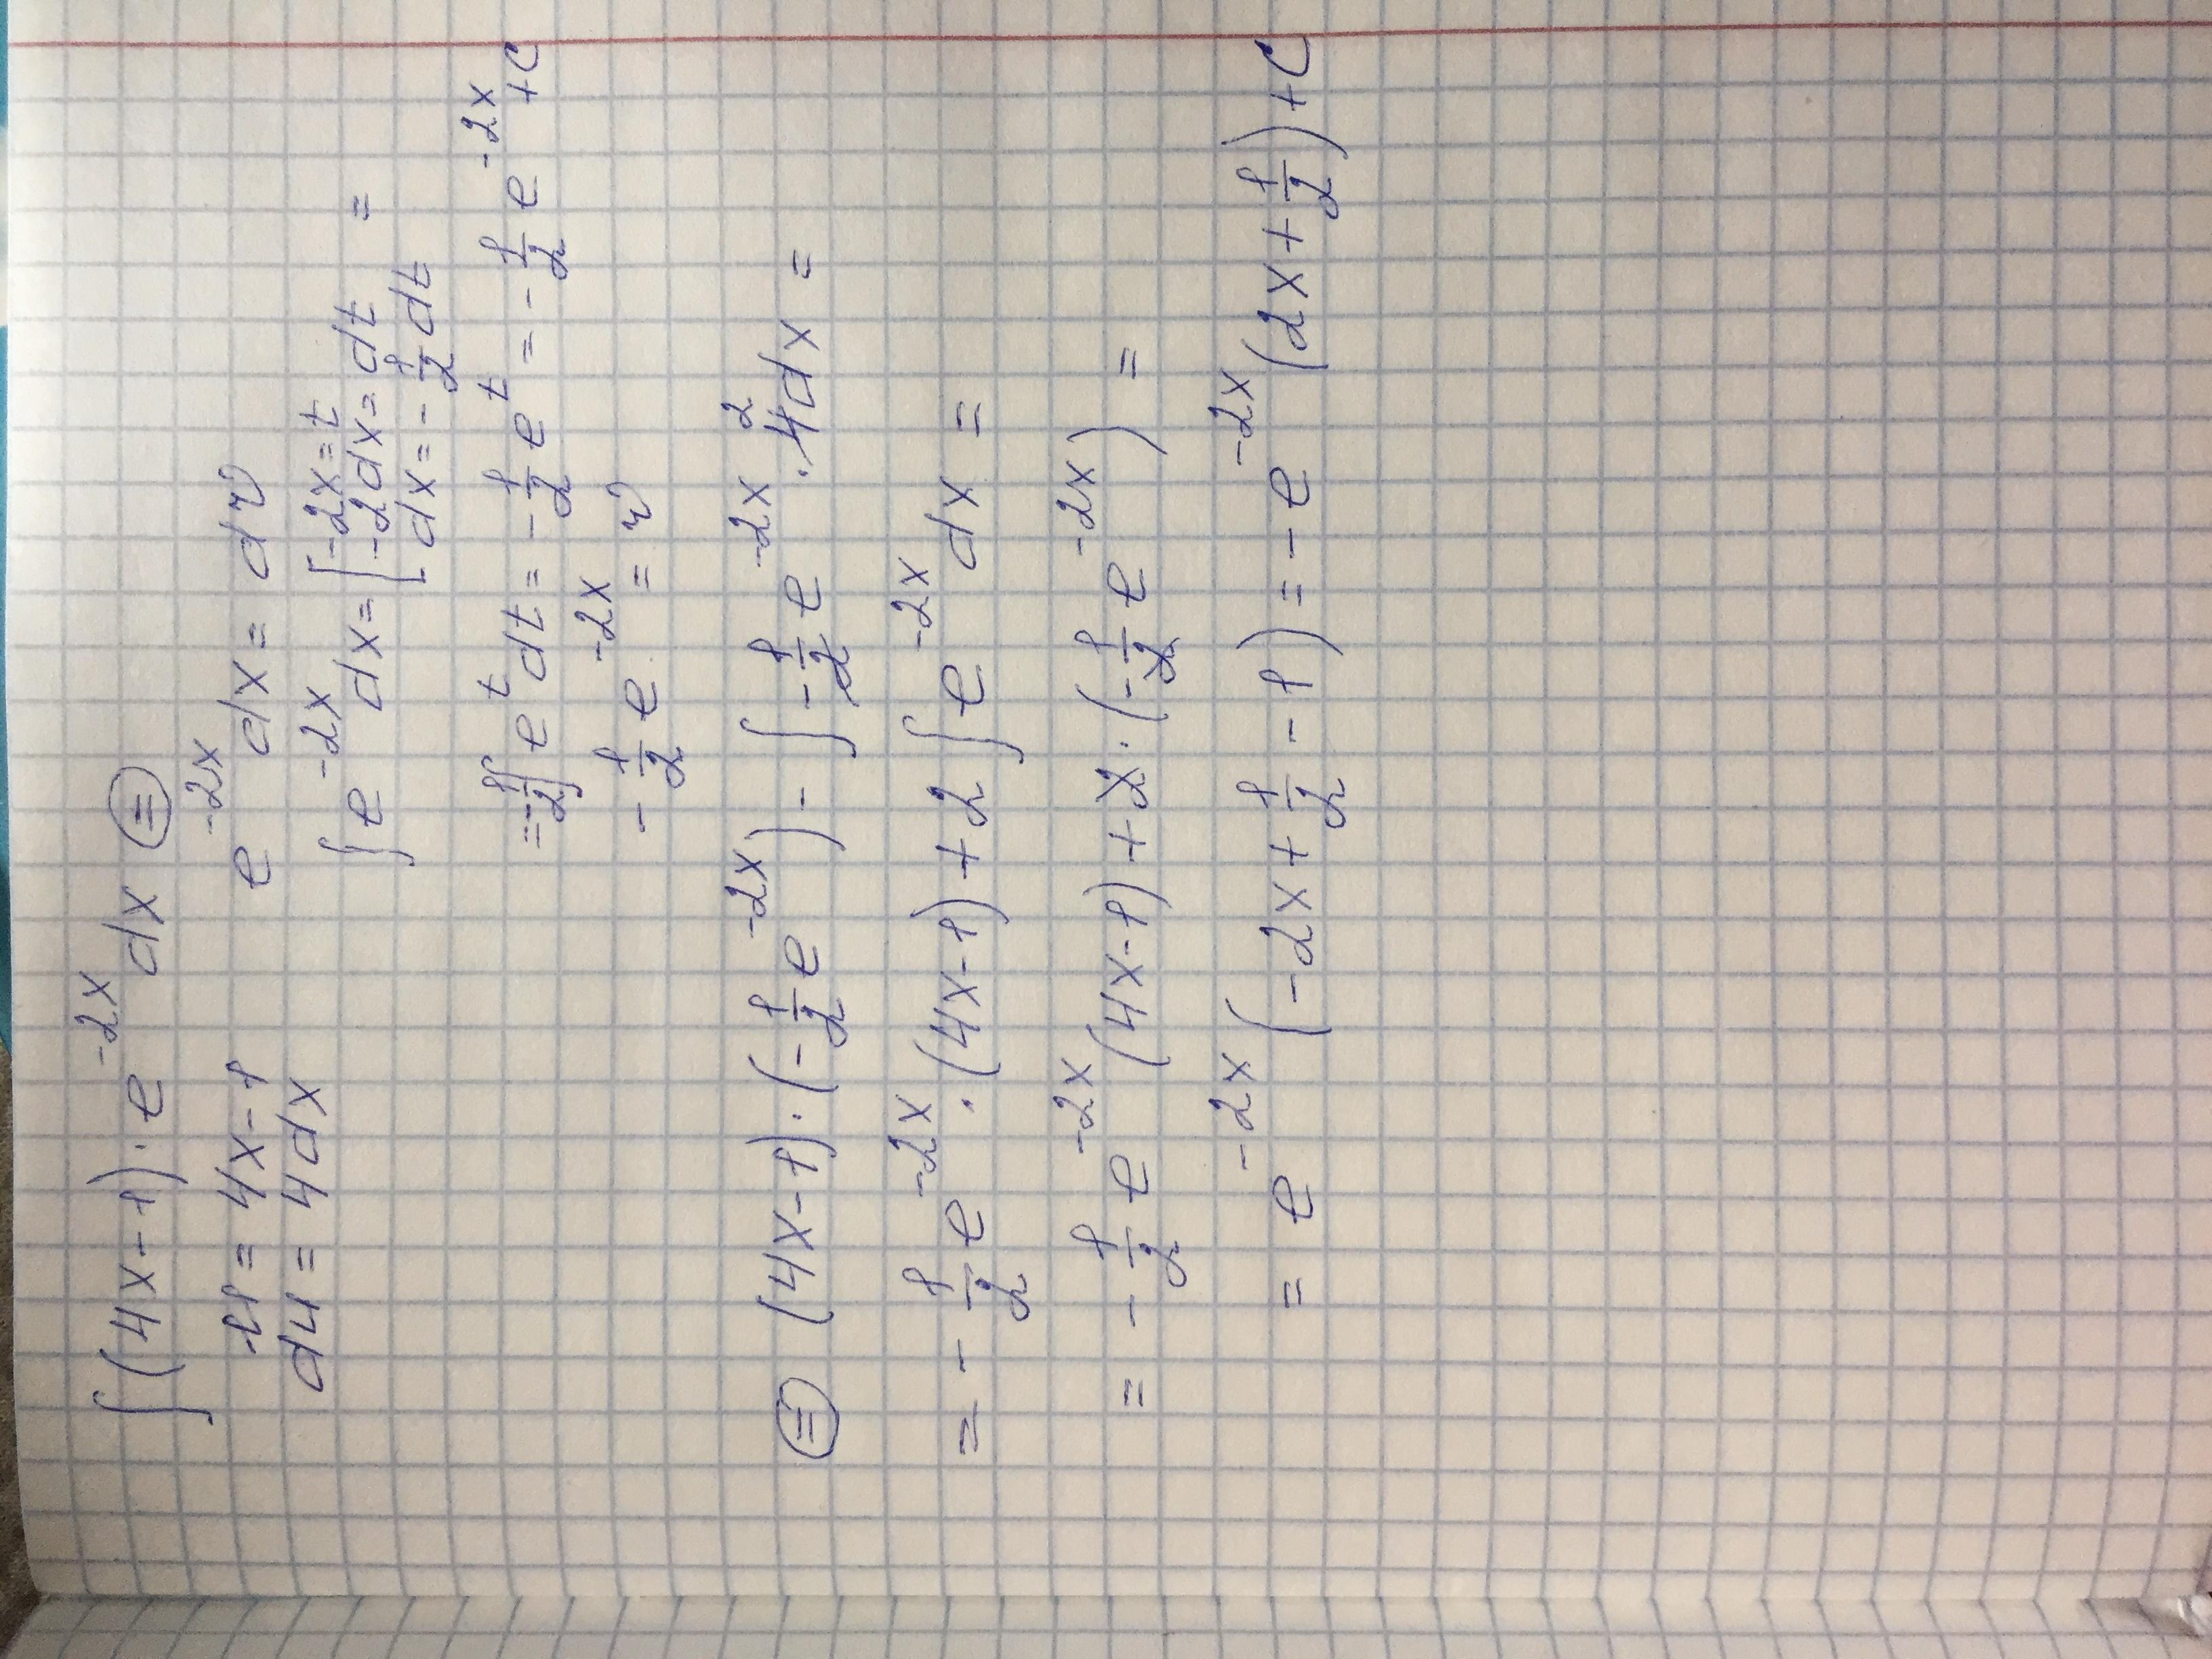 ∫(4x-1)·e^{-2x} dx ⊜
u = 4x-1   e^{-2x} dx = dv
du = 4dx   ∫e^{-2x} dx = [-2x=t
-2dx=dt
dx=-1/2 dt =
=-1/2∫e^t dt = -1/2 e^t = -1/2 e^{-2x} +C
-1/2 e^{-2x} = v
⊜ (4x-1)·(-1/2 e^{-2x}) - ∫-1/2 e^{-2x}·4^2 dx =
= -1/2 e^{-2x}·(4x-1)+2∫e^{-2x} dx =
= -1/2 e^{-2x}(4x-1)+2·(-1/2 e^{-2x}) =
= e^{-2x}(-2x+1/2-1) = -e^{-2x}(2x+1/2)+C